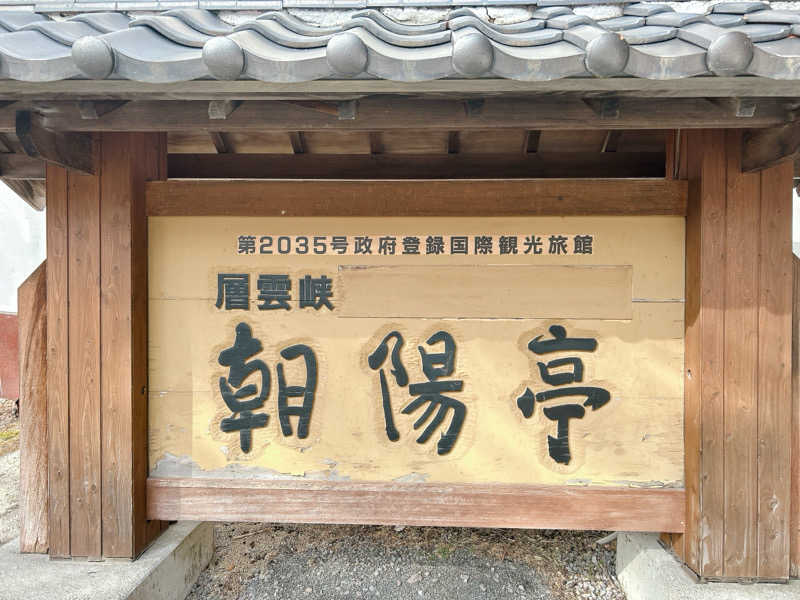 第2035号政府登録国際観光旅館
層雲峡
朝陽亭